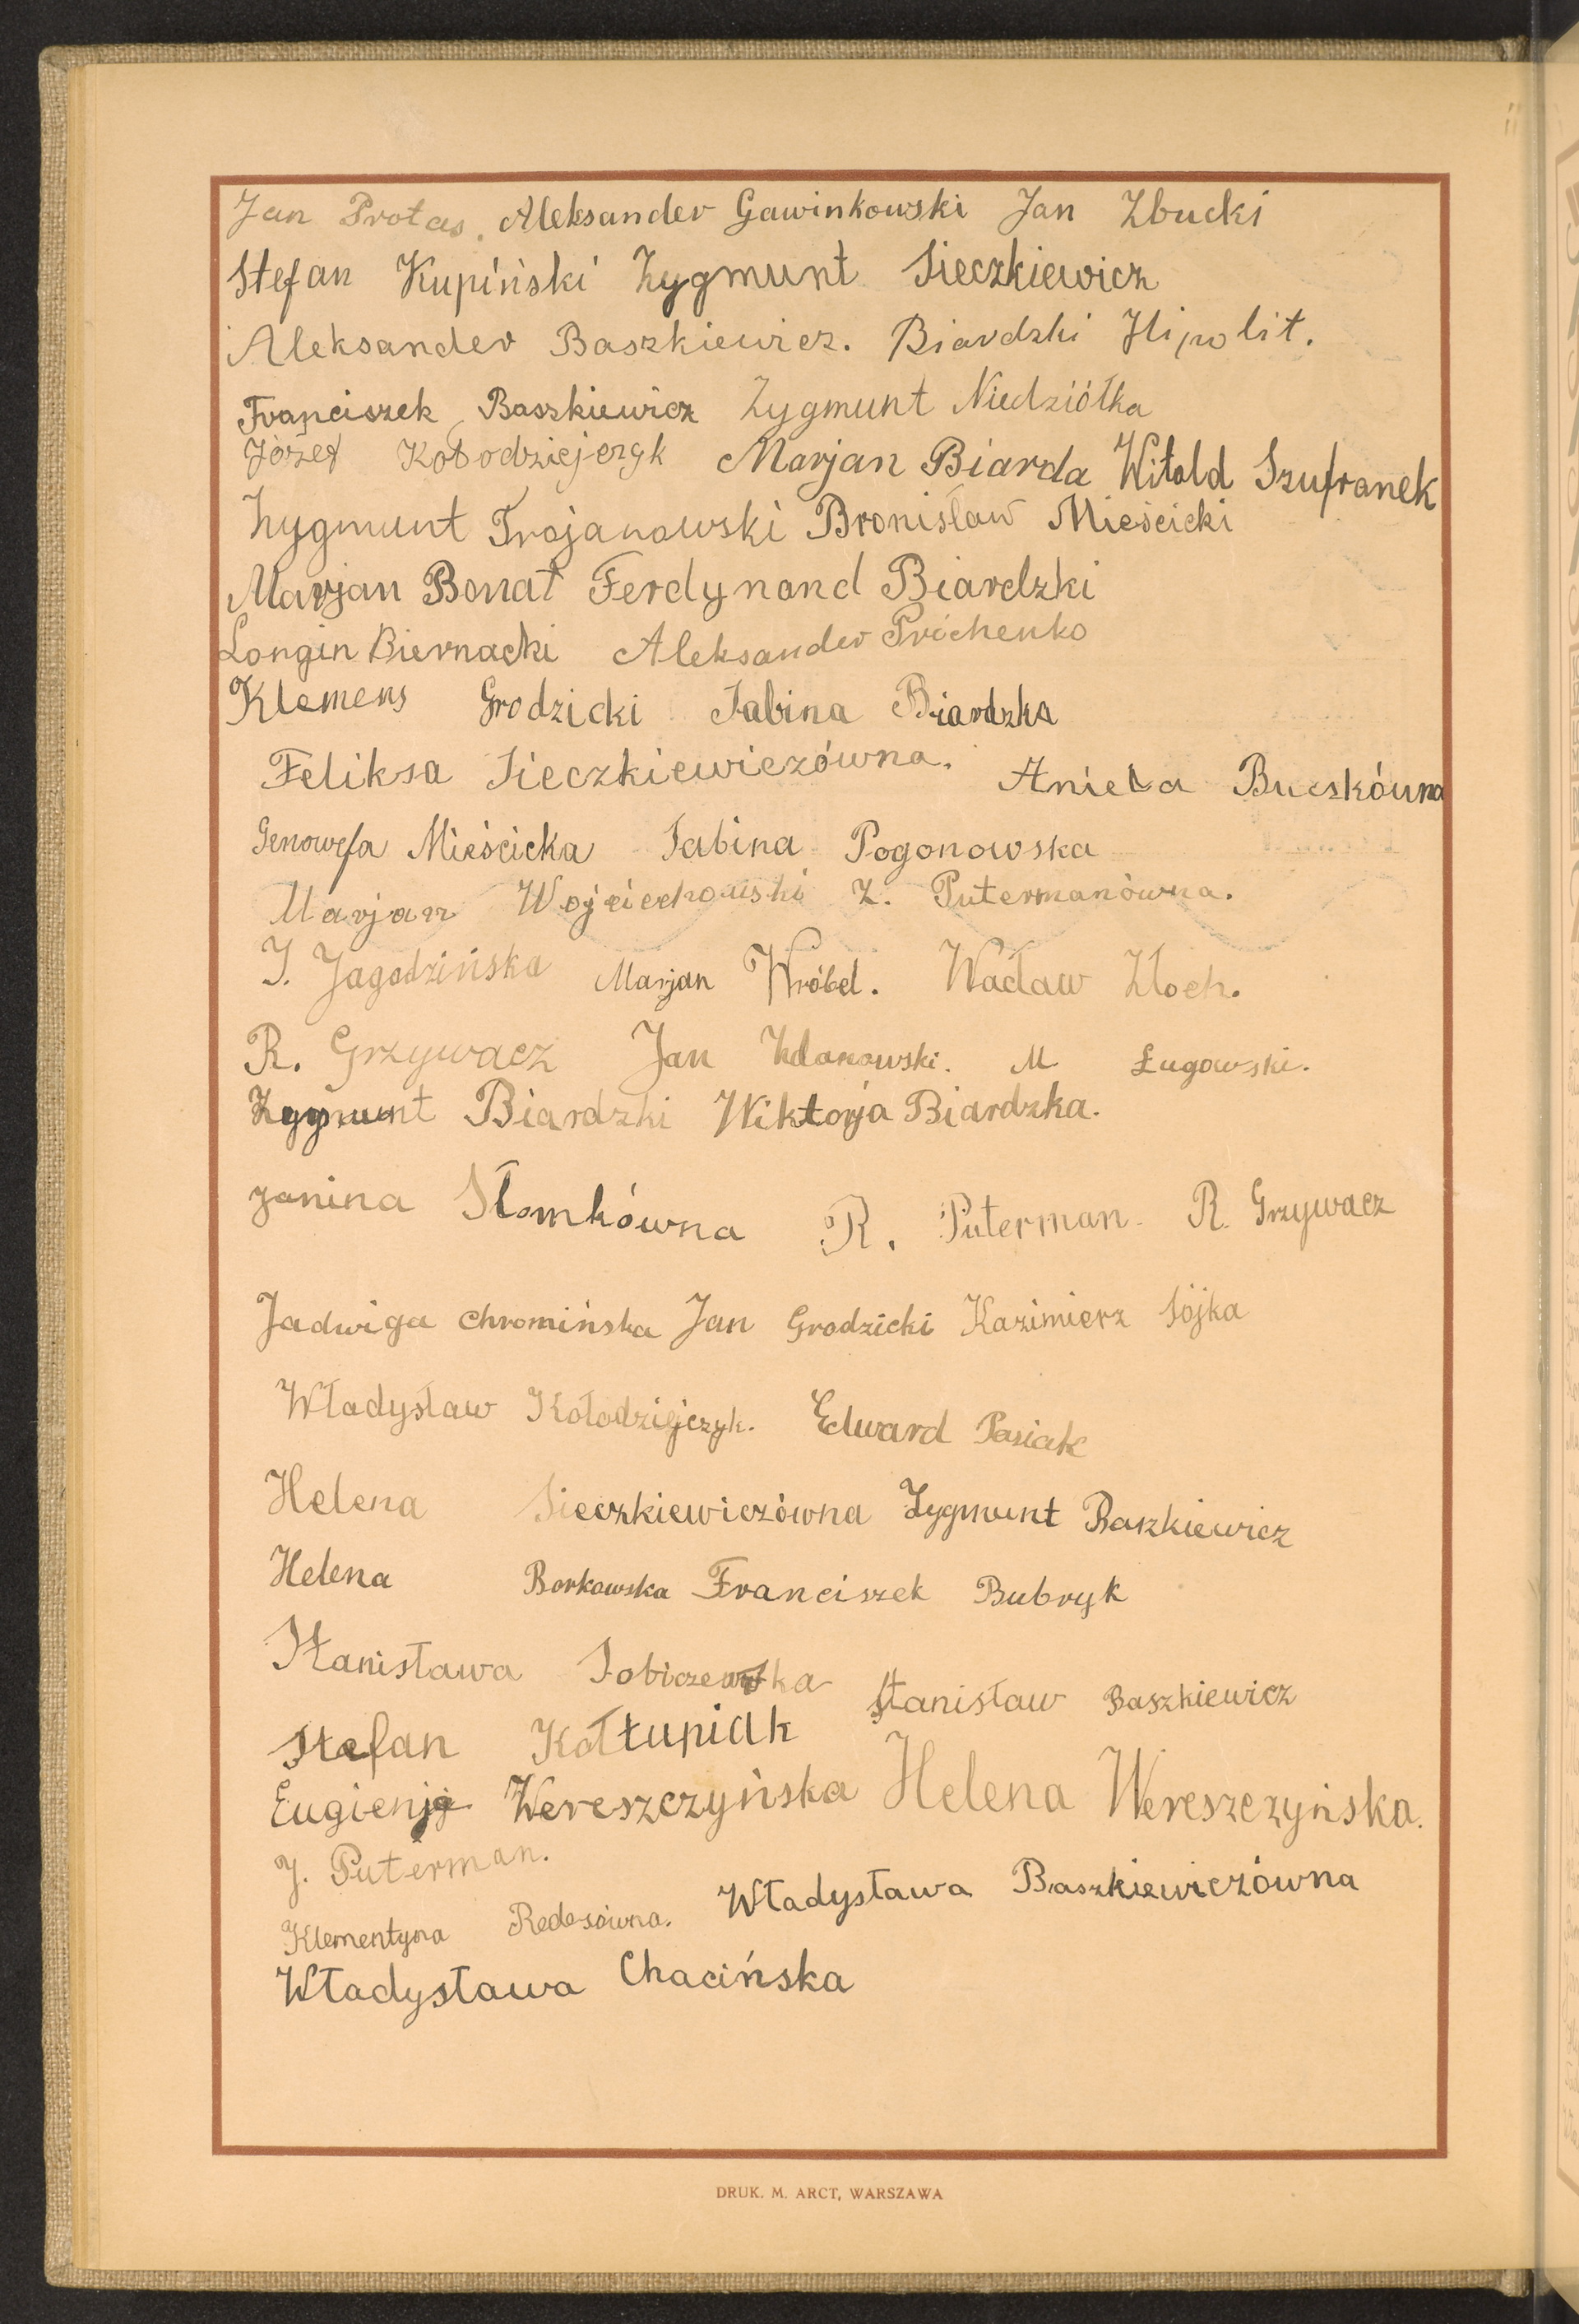 Jan Protas. Aleksander Gawinkowski Jan Zbucki
Stefan Kupiński Zygmunt Sieczkiewicz
Aleksander Baszkiewicz. Biardzki Hipolit.
Franciszek Baszkiewicz Zygmunt Niedziółka
Józef Kołodziejczyk Marjan Biarda Witold Szufranek
Zygmunt Trojanowski Bronisław Mieścicki
Marjan Bonat Ferdynand Biardzki
Longin Biernacki Aleksander Próchenko
Klemens Grodzicki Sabina Biardzka
Feliksa Sieczkiewiczówna. Aniela Buczkówna
Genowefa Mieścicka Sabina Pogonowska
Marjan Wojciechowski Z. Putermanówna.
J. Jagodzińska Marjan Wróbel. Wacław Złoch.
R. Grzywacz Jan Zdanowski. M Ługowski.
Zygmunt Biardzki Wiktorja Biardzka.
Janina Słomkówna R. Puterman. R. Grzywacz
Jadwiga Chromińska Jan Grodzicki Kazimierz Sójka
Władysław Kołodziejczyk. Edward Pasiak
Helena Sieczkiewiczówna Zygmunt Baszkiewicz
Helena Borkowska Franciszek Bubryk
Stanisława Sobiczewska Stanisław Baszkiewicz
Stefan Kołtupiak
Eugienja Wereszczyńska Helena Wereszczyńska.
J. Puterman.
Klementyna Redesówna. Władysława Baszkiewiczówna
Władysława Chacińska
DRUK. M. ARCT, WARSZAWA